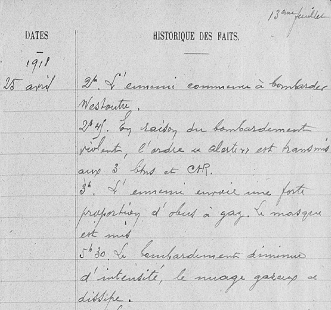 13ème feuillet
DATES HISTORIQUE DES FAITS.
1918
25 avril 2h. L'ennemi commence à bombarder
Westoutre.
2h45. En raison du bombardement
violent, l'ordre « alerte » est transmis
aux 3 btns et CHR.
3h. L'ennemi envoie une forte
proportion d'obus à gaz. Le masque
est mis
5h30 Le bombardement diminue
d'intensité, le nuage gazeux se
dissipe.